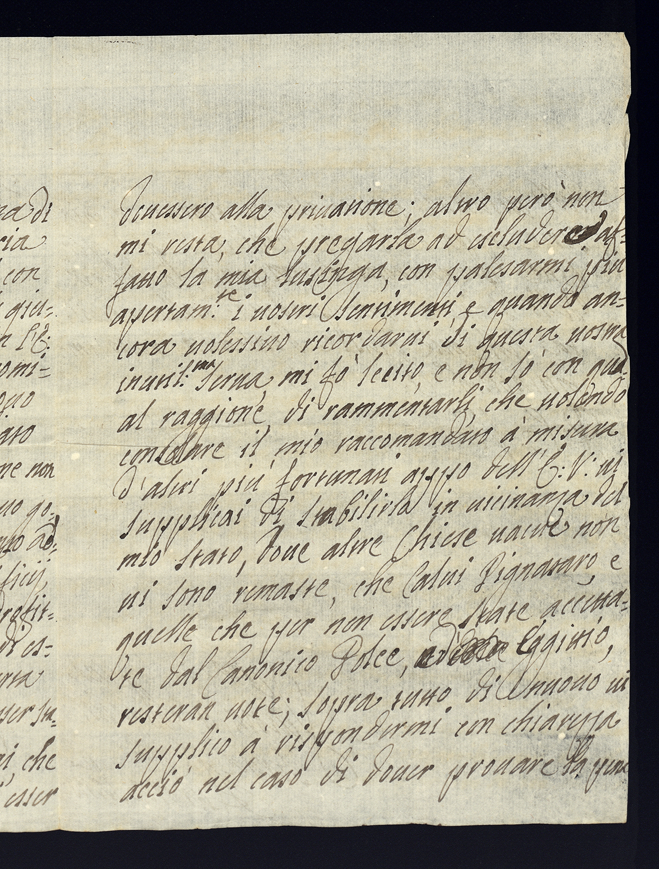 na di
cia
con
giu=
n l'E:
omi=
quo
ato
ne non
uo go.
nto ad=
ficij,
di es=
che
esser
deuessero alla priuatione; altro però non
mi resta, che pregarla ad escludere af=
fatto la mia lusinga, con palesarmi più
apertam.te i uostri sentimenti e quando an=
cora uolessiuo ricordarui di questa uostra
inutil.ma serua, mi fò lecito, e non sò con qua
al raggione, di rammentarli, che uolendo
consolare il mio raccomandato à misura
d'altri più fortunati appo dell'E: V: ui
supplicai di stabilirlo in uicinanza del
mio stato, doue altre Chiese uacue non
ui sono remaste, che Calui Pignataro, e
quelle che per non essere state accetta=
te dal Canonico Dolce, Eggittio,
resteran uote; sopra tutto di nuouo ui
supplico à rispondermi con chiarezza
acciò nel caso di douer prouare la pena